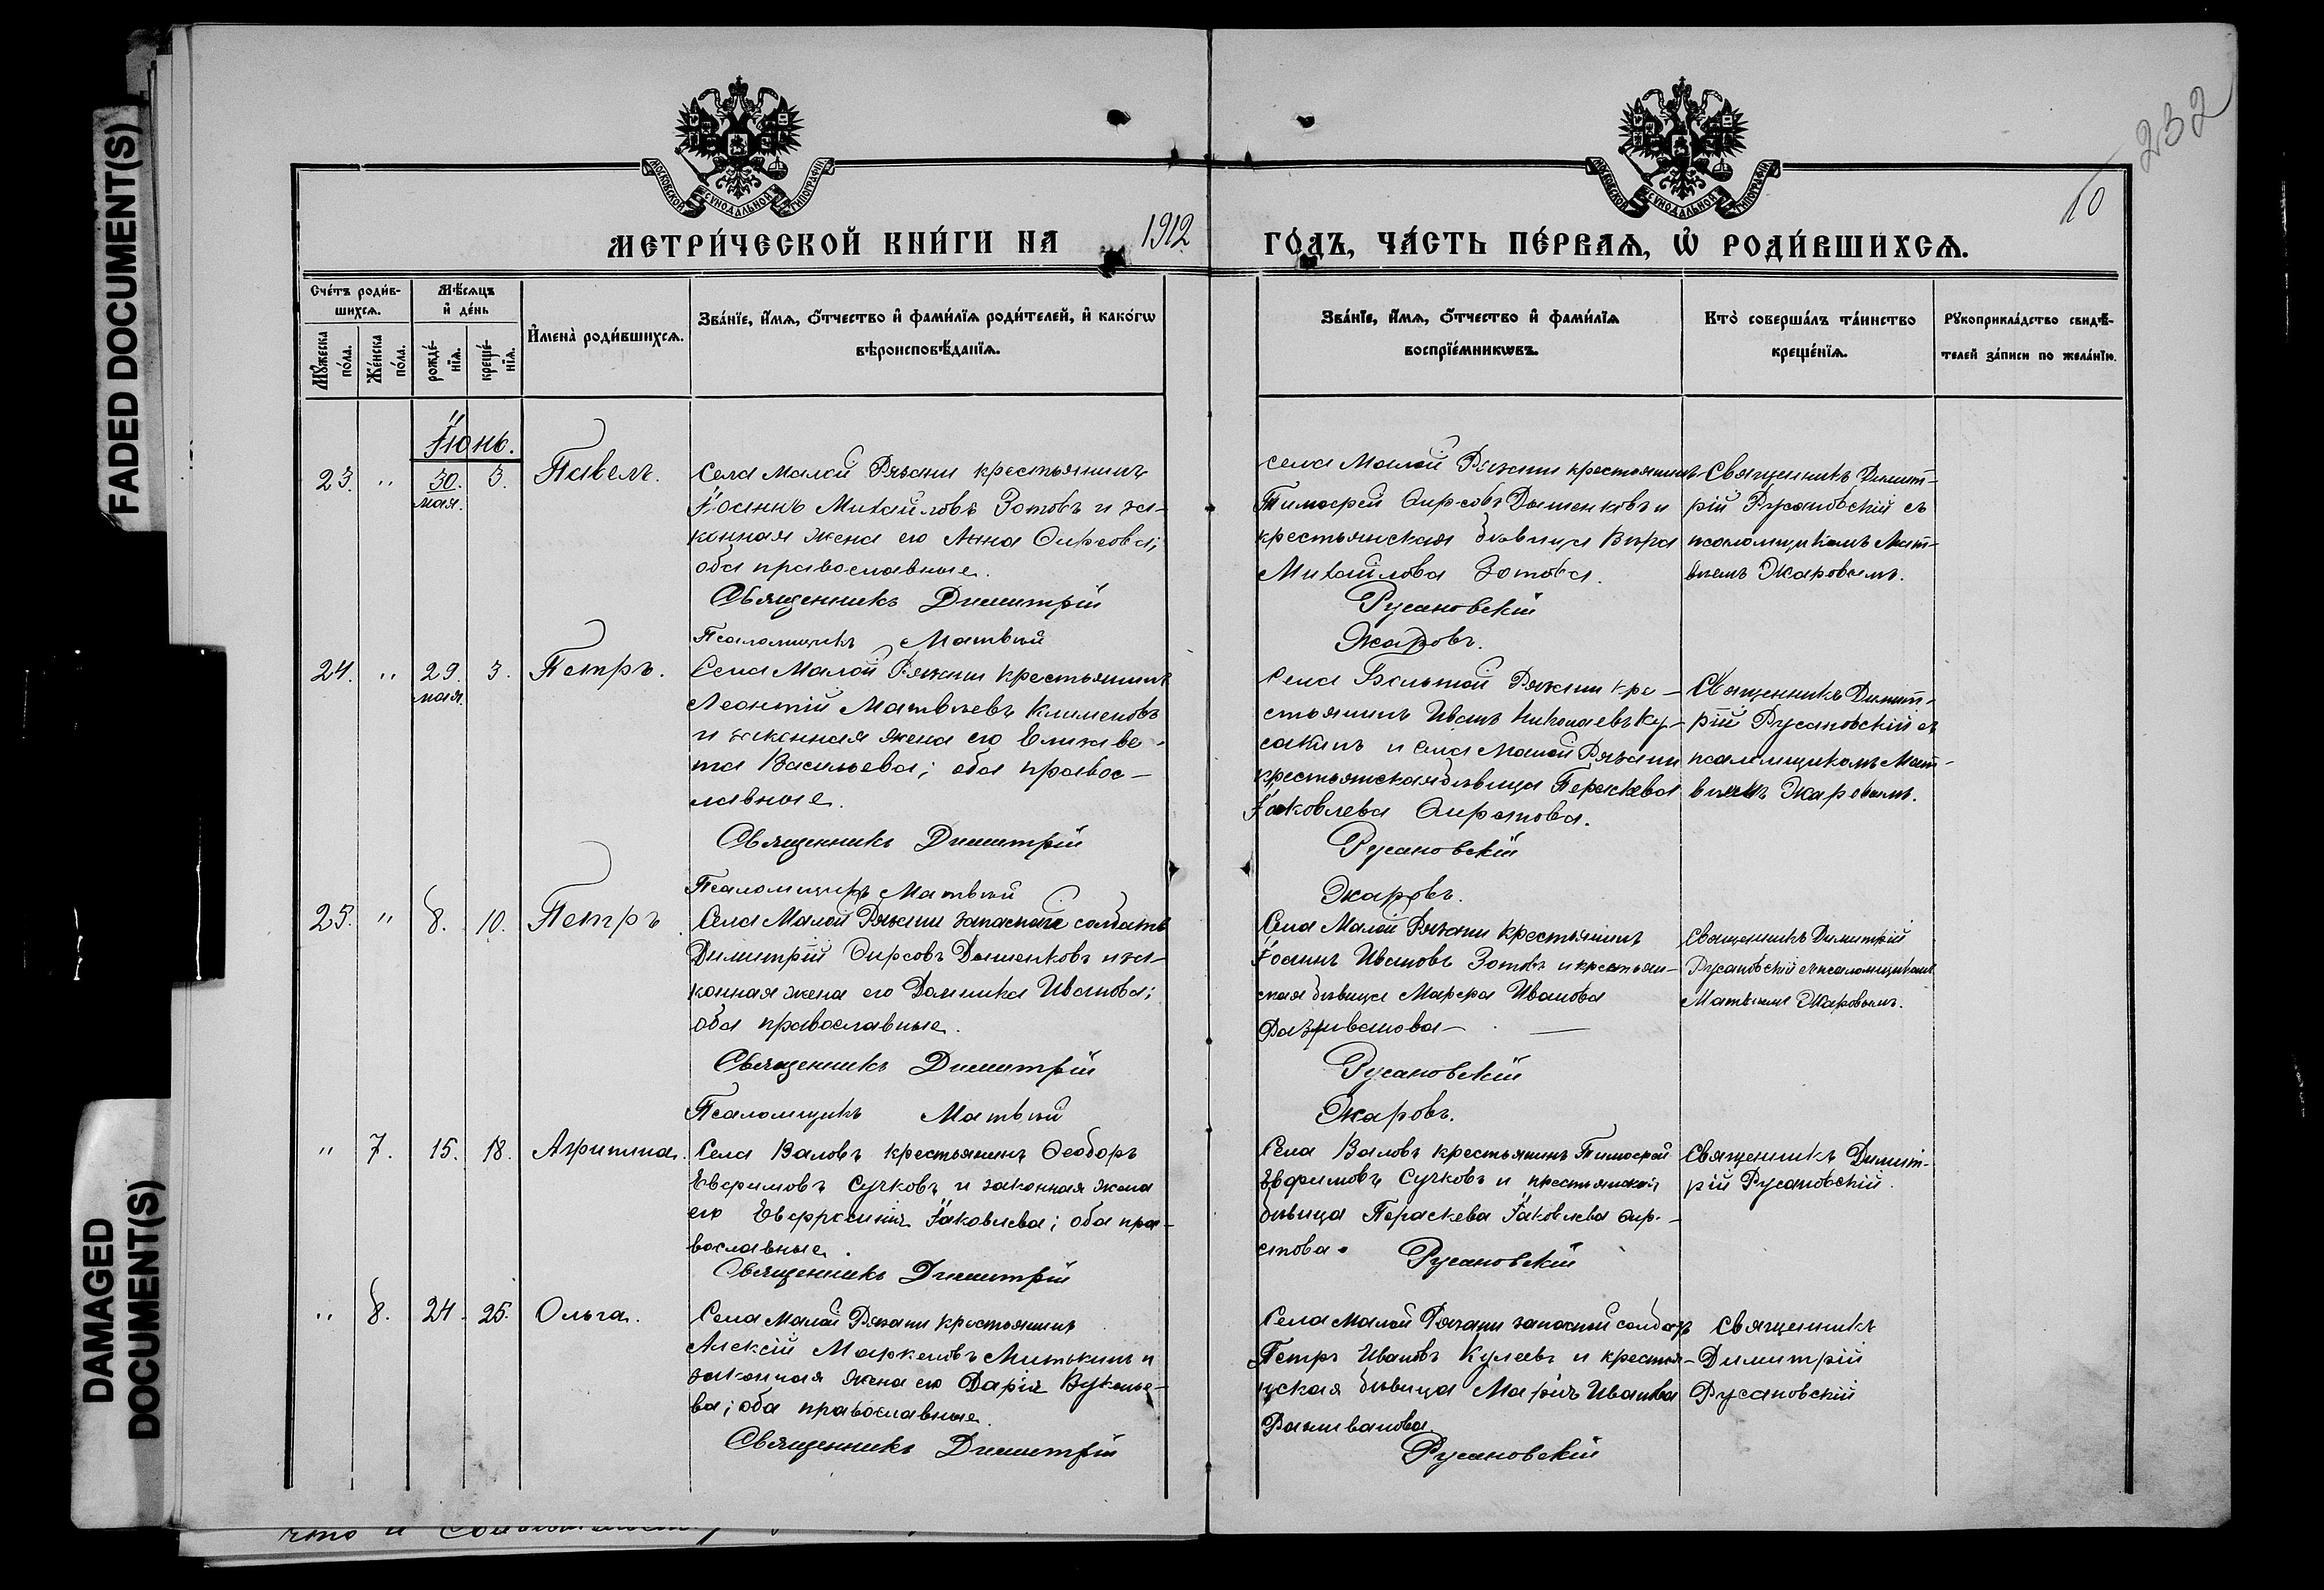 FADED DOCUMENT(S)
DAMAGED
DOCUMENT(S)
232
10
МОСКОВСКОЙ СѴНОДАЛЬНОЙ ТИПОГРАФІИ
МОСКОВСКОЙ СѴНОДАЛЬНОЙ ТИПОГРАФІИ
МЕТРИ́ЧЕСКОЙ КНИ́ГИ НА 1912 ГО́ДЪ, ЧА́СТЬ ПЕ́РВАЯ, Ѡ҆ РОДИ́ВШИХСЯ.
Сче́тъ роди́в-
шихся.
Мꙋ́жеска по́ла.
Же́нска по́ла.
Мѣ́сяцъ
и҆ де́нь
рожде́-
нїя.
креще́-
нїя.
И҆мена̀ роди́вшихся.
Зва́нїе, и҆́мя, ѻ҆́тчество и҆ фами́лїя роди́телей, и҆ како́гѡ
вѣроисповѣ́данїя.
Зва́нїе, и҆́мя, ѻ҆́тчество и҆ фами́лїя
воспрїе́мникѡвъ.
Кто̀ соверша́лъ та́инство
креще́нїя.
Рꙋкоприкла́дство свидѣ́-
телей за́писи по жела́нїю.
Іюнь.
23. " 30. мая. 3. Павелъ.
Села Малой Ряхани крестьянинъ
Іоаннъ Михайловъ Зотовъ и за-
конная жена его Анна Фирсова;
оба православные.
Священникъ Димитрій
Псаломщикъ Матвѣй
Села Малой Ряхани крестьянинъ
Тимофей Фирсовъ Дышенковъ и
крестьянская дѣвица Вѣра
Михайлова Зотова.
Русановскій
Жаровъ.
Священникъ Димит-
рій Русановскій съ
псаломщикомъ Мат-
вѣемъ Жаровымъ.
24. " 29. мая. 3. Петръ.
Села Малой Ряхани крестьянинъ
Леонтій Матвѣевъ Климовъ
и законная жена его Елизаве-
та Васильева; оба правос-
лавные.
Священникъ Димитрій
Псаломщикъ Матвѣй
Села Большой Ряхани кре-
стьянинъ Иванъ Николаевъ Ку-
сакинъ и села Малой Ряхани
крестьянская дѣвица Пераскева
Іаковлева
Русановскій
Жаровъ.
Священникъ Димит-
рій Русановскій съ
псаломщикомъ Мат-
вѣемъ Жаровымъ.
25. " 8. 10. Петръ
Села Малой Ряхани запаснаго солдатъ
Димитрій Фирсовъ Дышенковъ и за-
конная жена его Домника Иванова;
оба православные.
Священникъ Димитрій
Псаломщикъ Матвѣй
Села Малой Ряхани крестьянинъ
Іоаннъ Ивановъ Зотовъ и крестьян-
ская дѣвица Марфа Иванова
Разживанова
Русановскій
Жаровъ.
Священникъ Димитрій
Русановскій съ псаломщикомъ
Матвѣемъ Жаровымъ.
" 7. 15. 18. Агрипина.
Села Валовъ крестьянинъ Ѳеодоръ
Евфимовъ Сучковъ и законная жена
его Евфросинія Іаковлева; оба пра-
вославные.
Священникъ Димитрій
Села Валовъ крестьянинъ Тимофей
Евфимовъ Сучковъ и крестьянская
дѣвица Пераскева Іаковлева
Русановскій
Священникъ Димит-
рій Русановскій.
" 8. 24. 25. Ольга.
Села Малой Ряхани крестьянинъ
Алексій Маркеловъ Митькинъ и
законная жена его Дарія Вуколо-
ва; оба православные.
Священникъ Димитрій
Села Малой Ряхани запасный солдатъ
Петръ Ивановъ Кулеевъ и крестья-
нская дѣвица Марія Иванова
Разживанова
Русановскій
Священникъ
Димитрій
Русановскій
что и